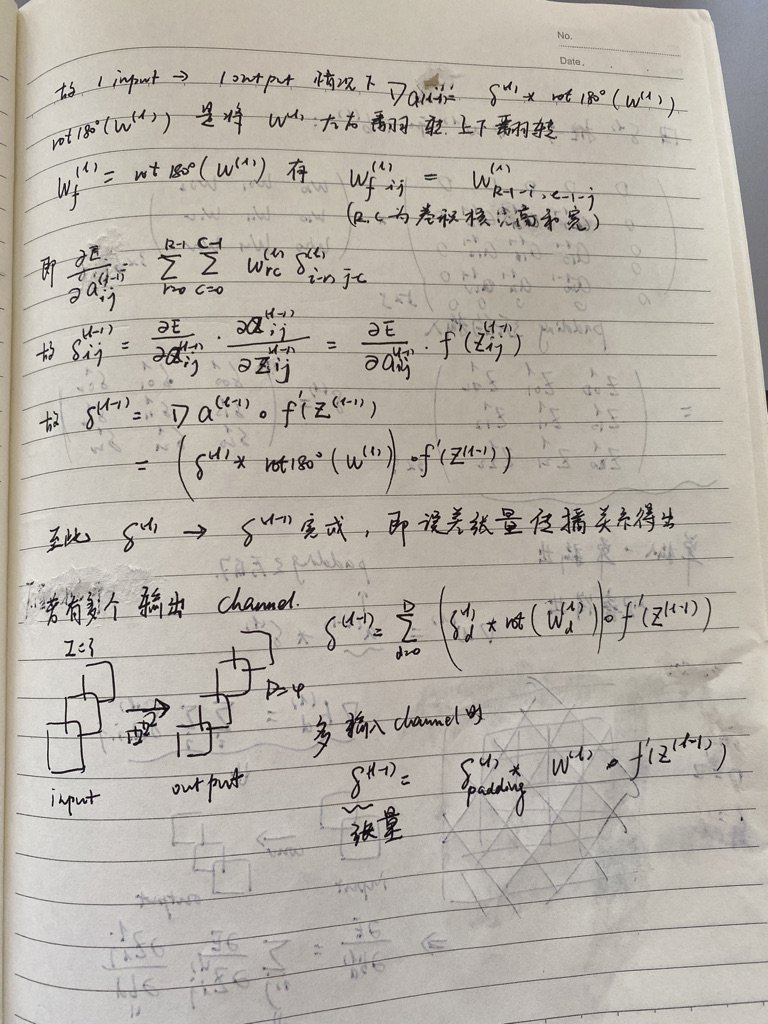 No.
Date.
故 1 input → 1 output 情况下 ∇a^{(l-1)} = δ^{(l)} * rot180°(W^{(l)})
rot180°(W^{(l)}) 是将 W^{(l)} 左右翻转 上下翻转
W_f^{(l)} = rot180°(W^{(l)}) 有 W_{f ij}^{(l)} = W_{R-1-i, c-1-j}^{(l)}
(R, C 为卷积核高和宽)
即 ∂E/∂a_{ij}^{(l-1)} = Σ_{r=0}^{R-1} Σ_{c=0}^{C-1} w_{rc}^{(l)} δ_{i-r, j-c}^{(l)}
故 δ_{ij}^{(l-1)} = ∂E/∂a_{ij}^{(l-1)} · ∂a_{ij}^{(l-1)}/∂z_{ij}^{(l-1)} = ∂E/∂a_{ij}^{(l-1)} · f'(z_{ij}^{(l-1)})
故 δ^{(l-1)} = ∇a^{(l-1)} ∘ f'(Z^{(l-1)})
= (δ^{(l)} * rot180°(W^{(l)})) ∘ f'(Z^{(l-1)})
至此 δ^{(l)} → δ^{(l-1)} 完成, 即误差张量传播关系得出
若有多个输出 channel.
δ^{(l-1)} = Σ_{d=0}^{D} (δ_d^{(l)} * rot(W_d^{(l)})) ∘ f'(Z^{(l-1)})
I=3
D=4
input
output
多输入 channel 时
δ^{(l-1)} = δ_{padding}^{(l)} * W^{(l)} ∘ f'(Z^{(l-1)})
张量